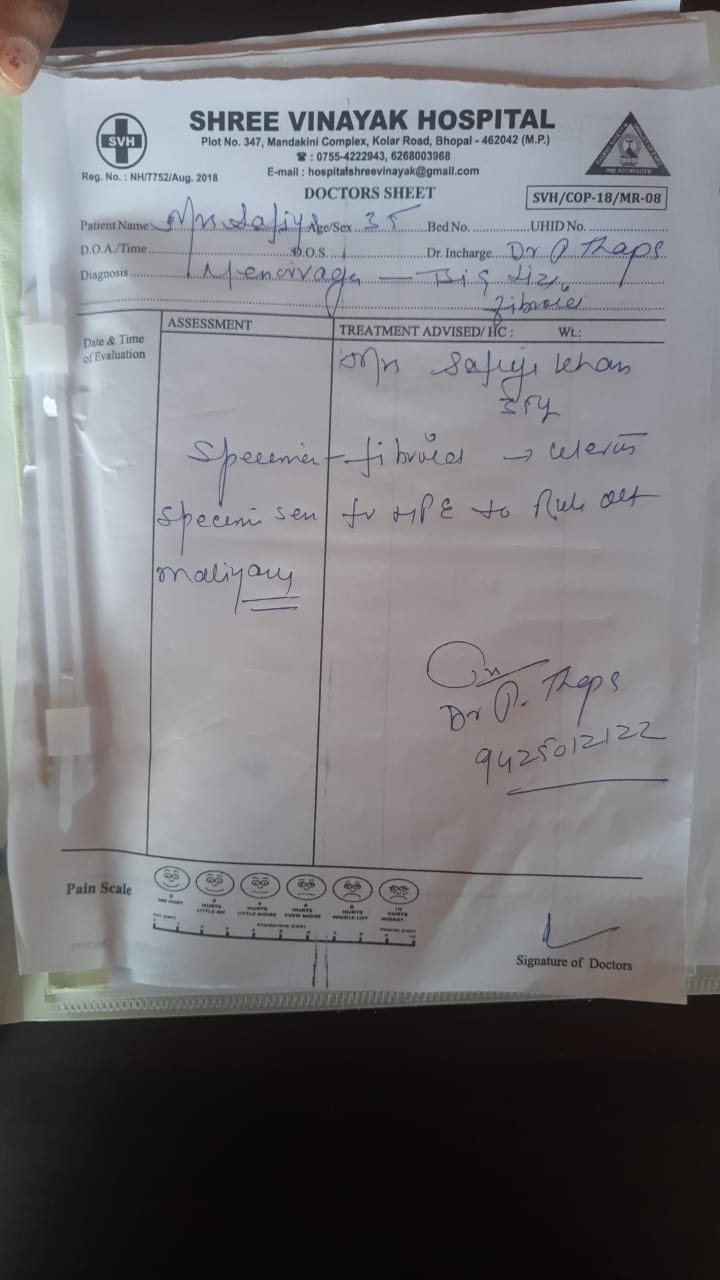 SHREE VINAYAK HOSPITAL
SVH
Plot No. 347, Mandakini Complex, Kolar Road, Bhopal - 462042 (M.P.)
☎ : 0755-4222943, 6268003968
E-mail : hospitalshreevinayak@gmail.com
Reg. No. : NH/7752/Aug. 2018
DOCTORS SHEET
SVH/COP-18/MR-08
Patient Name Mrs Safiya Age/Sex 35 Bed No. UHID No.
D.O.A/Time D.O.S. Dr. Incharge Dr P. Thapa
Diagnosis Big size
fibroid
Date & Time of Evaluation
ASSESSMENT
TREATMENT ADVISED/ HC : Wt.:
Mrs Safiya Khan
35y
Specimen - fibroid → uterus
Specimen sen for HPE to Rule out
malignancy
Dr P. Thapa
9425012122
Pain Scale
0 NO HURT
2 HURTS LITTLE BIT
4 HURTS LITTLE MORE
6 HURTS EVEN MORE
8 HURTS WHOLE LOT
10 HURTS WORST
No pain Moderate pain Worst pain
Signature of Doctors